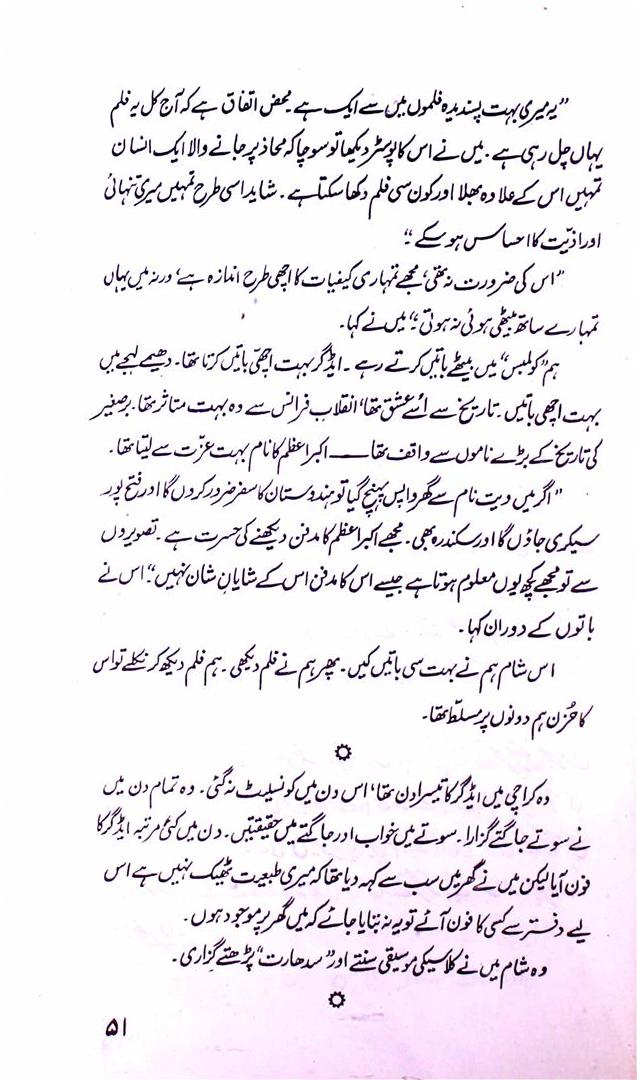 ”یہ میری بہت پسندیدہ فلموں میں سے ایک ہے۔ محض اتفاق ہے کہ آج کل یہ فلم
یہاں چل رہی ہے۔ میں نے اس کا پوسٹر دیکھا تو سوچا کہ محاذ پر جانے والا ایک انسان
تمہیں اس کے علاوہ بھلا اور کون سی فلم دکھا سکتا ہے۔ شاید اسی طرح تمہیں میری تنہائی
اور اذیّت کا احساس ہو سکے۔“
”اس کی ضرورت نہ تھی، مجھے تمہاری کیفیات کا اچھی طرح اندازہ ہے، ورنہ میں یہاں
تمہارے ساتھ بیٹھی ہوئی نہ ہوتی۔“ میں نے کہا۔
ہم ”کولمبس“ میں بیٹھے باتیں کرتے رہے۔ ایڈگر بہت اچھی باتیں کرتا تھا۔ دھیمے لہجے میں
بہت اچھی باتیں۔ تاریخ سے اُسے عشق تھا، انقلابِ فرانس سے وہ بہت متاثر تھا۔ برصغیر
کی تاریخ کے بڑے ناموں سے واقف تھا —— اکبر اعظم کا نام بہت عزّت سے لیتا تھا۔
”اگر میں ویت نام سے گھر واپس پہنچ گیا تو ہندوستان کا سفر ضرور کروں گا اور فتح پور
سیکری جاؤں گا اور سکندرہ بھی۔ مجھے اکبر اعظم کا مدفن دیکھنے کی حسرت ہے۔ تصویروں
سے تو مجھے کچھ یوں معلوم ہوتا ہے جیسے اس کا مدفن اس کے شایانِ شان نہیں۔“ اس نے
باتوں کے دوران کہا۔
اس شام ہم نے بہت سی باتیں کیں۔ پھر ہم نے فلم دیکھی۔ ہم فلم دیکھ کر نکلے تو اس
کا حُزن ہم دونوں پر مسلّط تھا۔
وہ کراچی میں ایڈگر کا تیسرا دن تھا، اس دن میں کونسلیٹ نہ گئی۔ وہ تمام دن میں
نے سوتے جاگتے گزارا۔ سوتے میں خواب اور جاگتے میں حقیقتیں۔ دن میں کئی مرتبہ ایڈگر کا
فون آیا لیکن میں نے گھر میں سب سے کہہ دیا تھا کہ میری طبیعت ٹھیک نہیں ہے اس
لیے دفتر سے کسی کا فون آئے تو یہ نہ بتایا جائے کہ میں گھر پر موجود ہوں۔
وہ شام میں نے کلاسیکی موسیقی سنتے اور ”سدھارت“ پڑھتے گزاری۔
۵۱